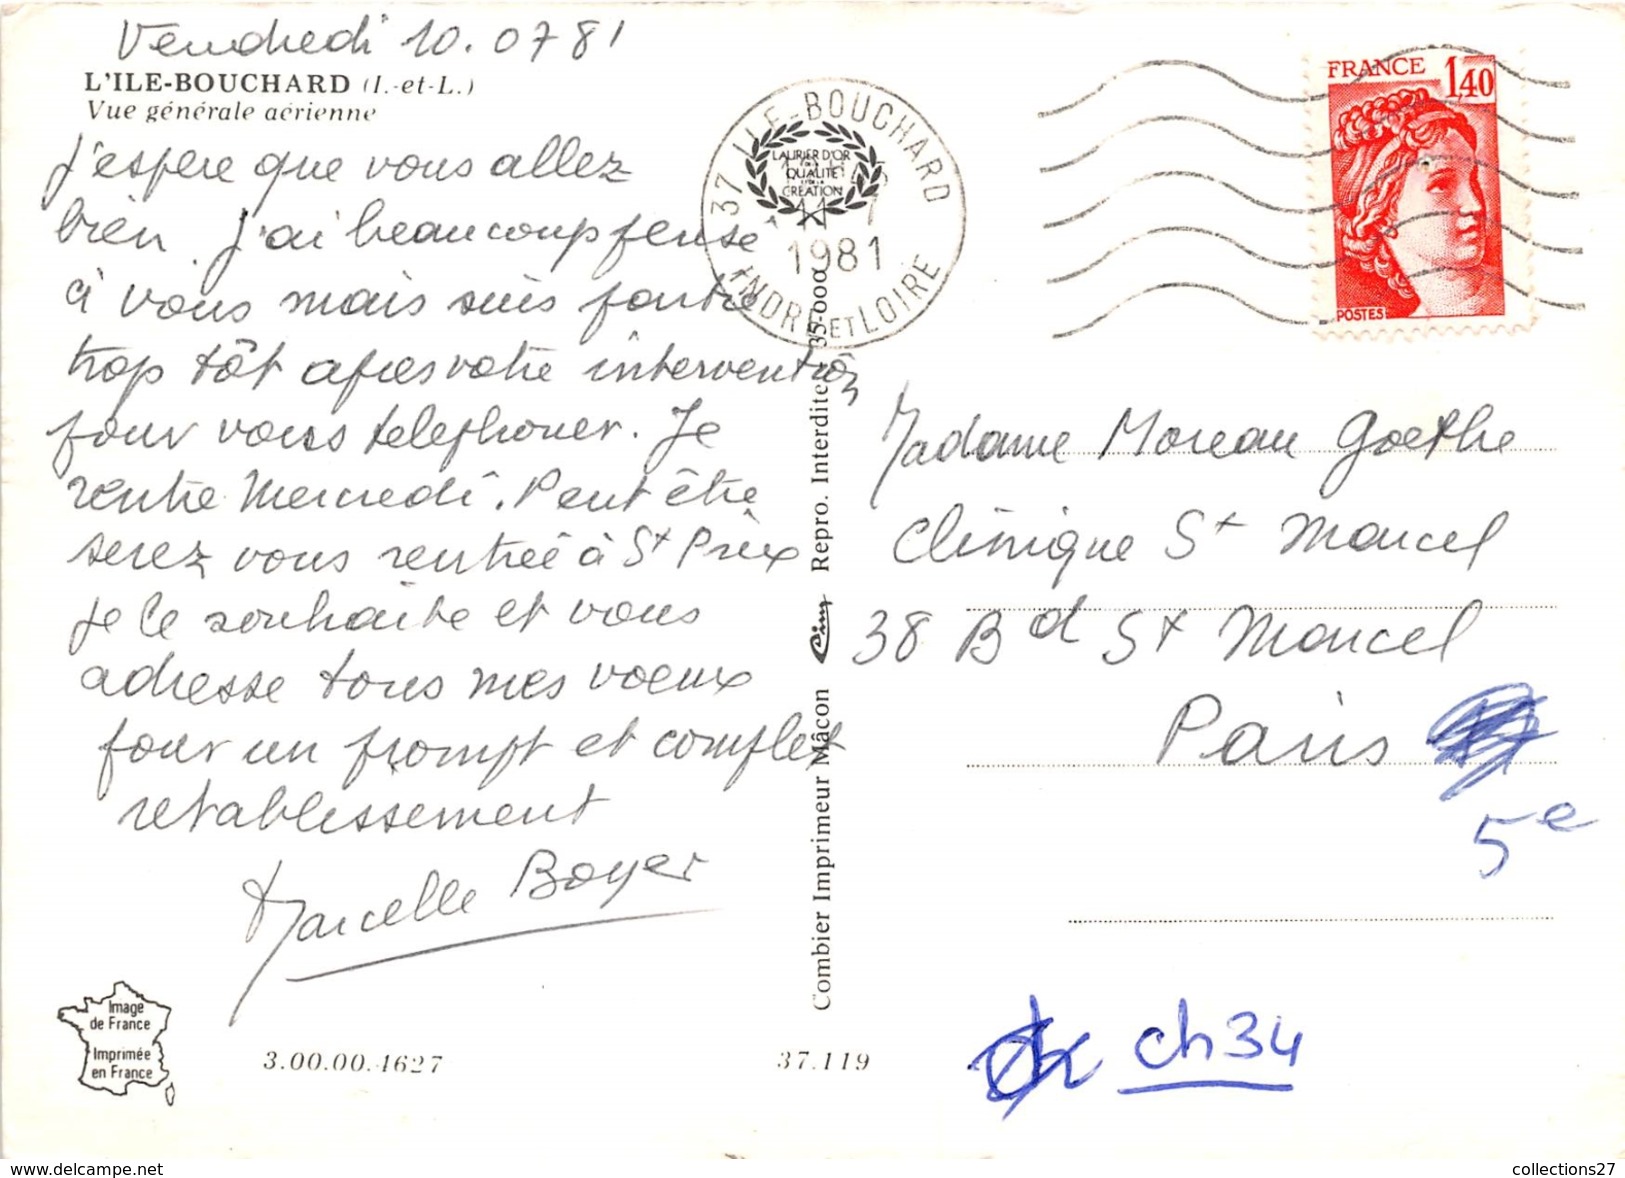 Vendredi 10.07 81
L'ILE-BOUCHARD (I.-et-L.)
Vue générale aérienne
J'espère que vous allez
bien. J'ai beaucoup pensé
à vous mais suis partie
trop tôt apres votre intervention
pour vous telephoner. Je
rentre Mercredi. Peut être
serez vous rentrée à St Prix
Je le souhaite et vous
adresse tous mes voeux
pour un prompt et complet
retablissement
Marcelle Boyer
Image
de France
Imprimée
en France
3.00.00.4627
37.119
Combier Imprimeur Mâcon Cim Repro. Interdite 35-000
37 ILE-BOUCHARD
LAURIER D'OR
QUALITÉ
CRÉATION
1981
INDRE ET LOIRE
FRANCE
1,40
POSTES
Madame Moreau Goethe
Clinique St Marcel
38 Bd St Marcel
Paris
5e
ch 34
www.delcampe.net
collections27